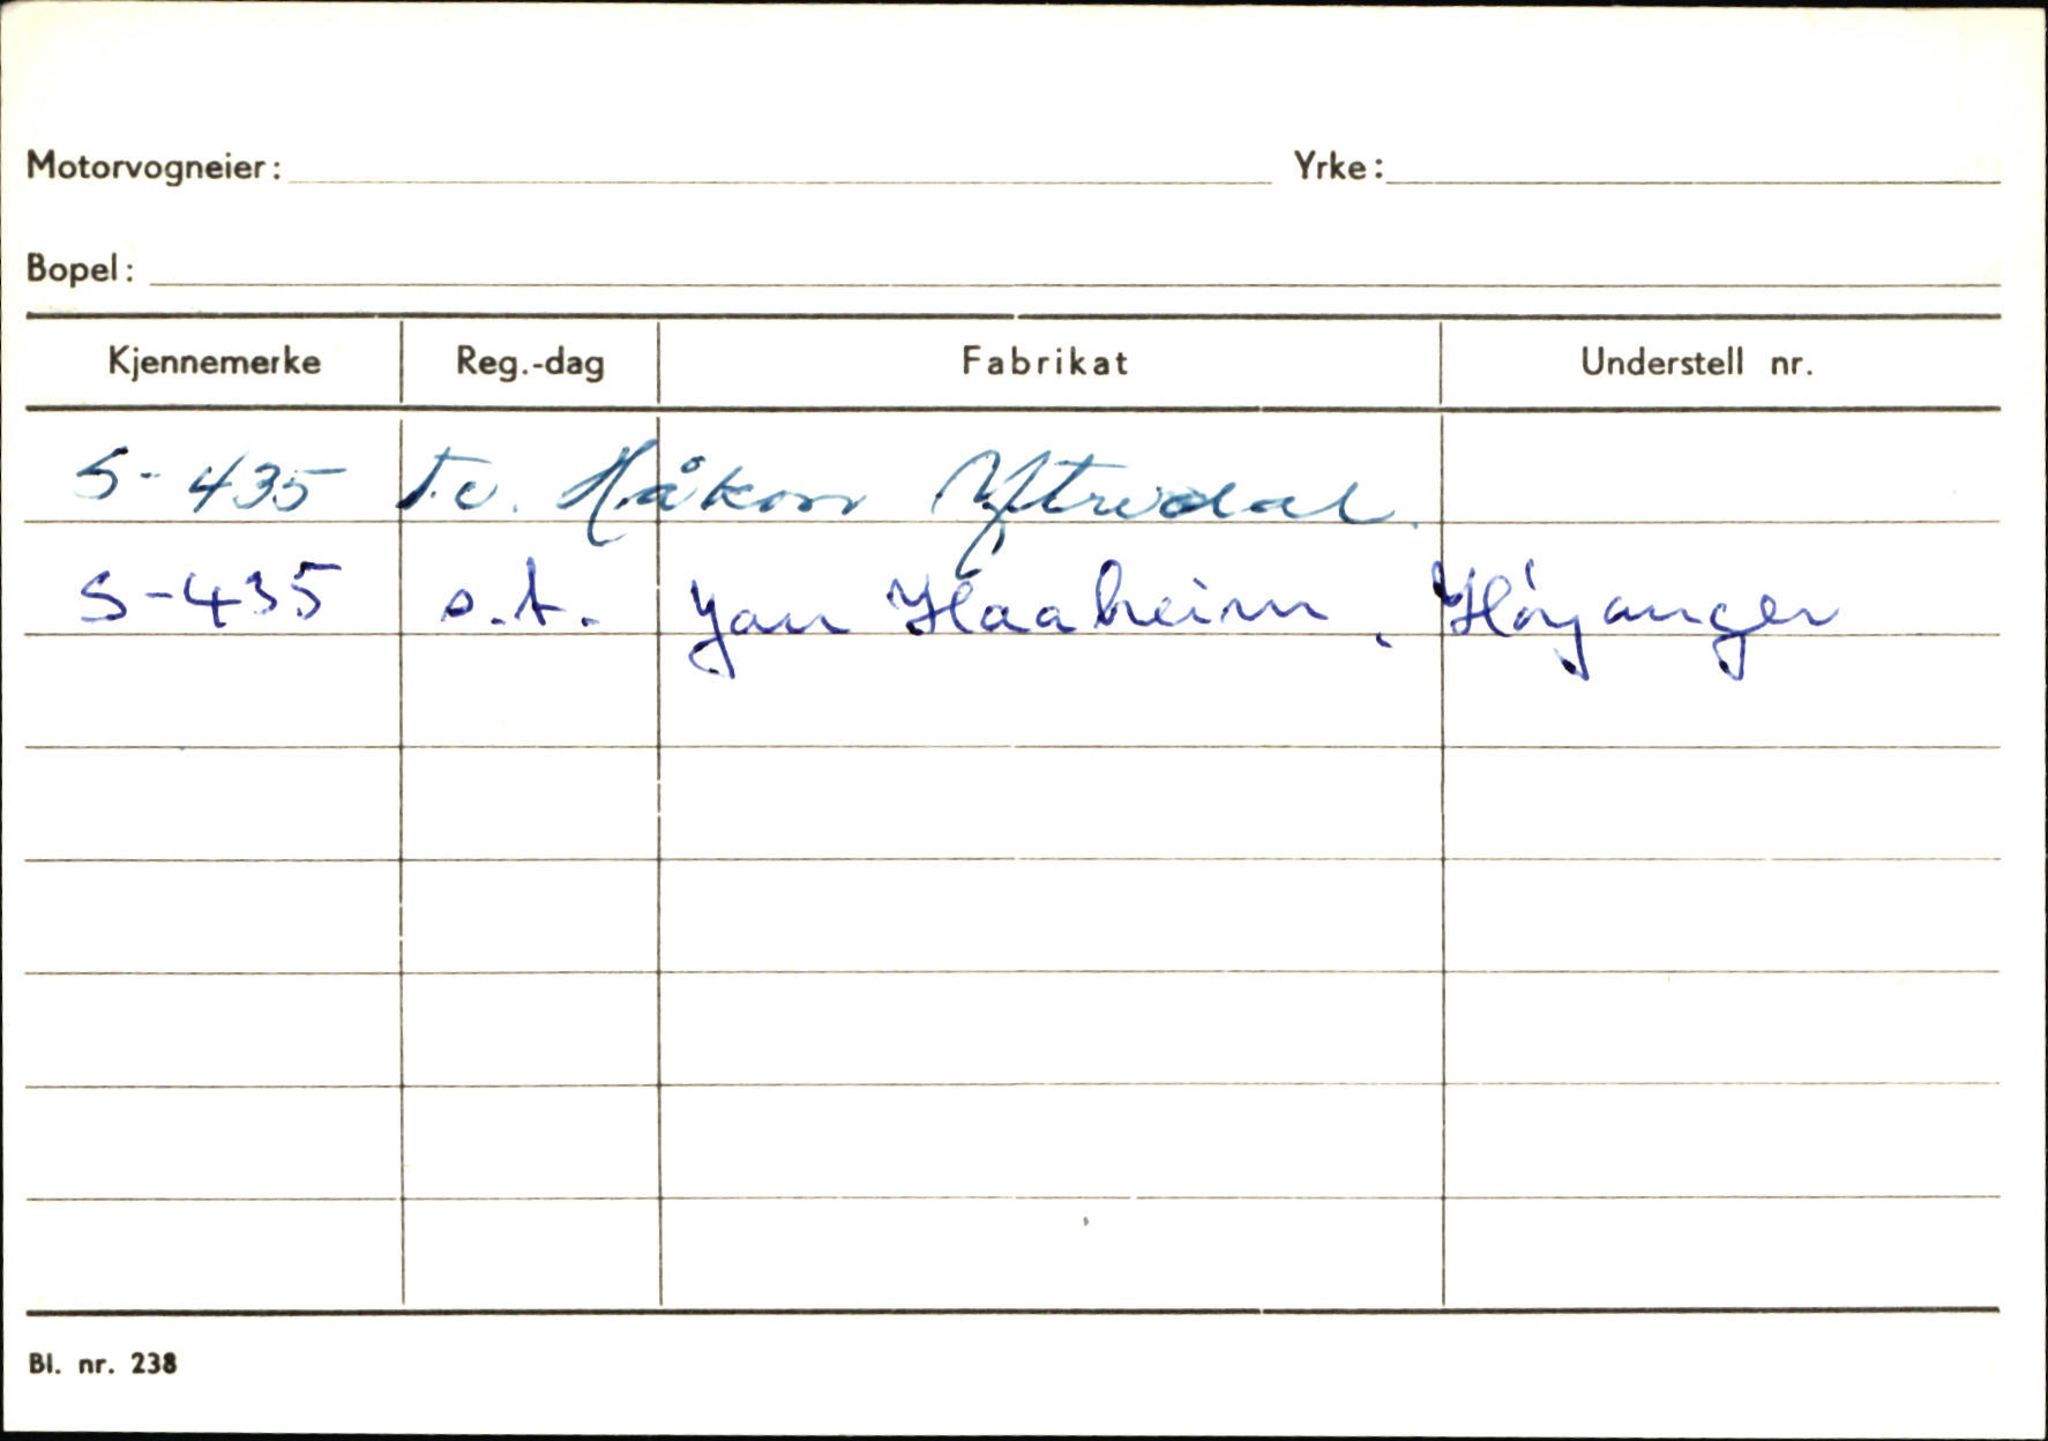 Motorvogneier: Yrke:
Bopel:
Kjennemerke Reg.-dag Fabrikat Understell nr.
S-435 Håkon Ytredal.
S-435 o.t. Jan Haaheim, Höyanger
Bl. nr. 238